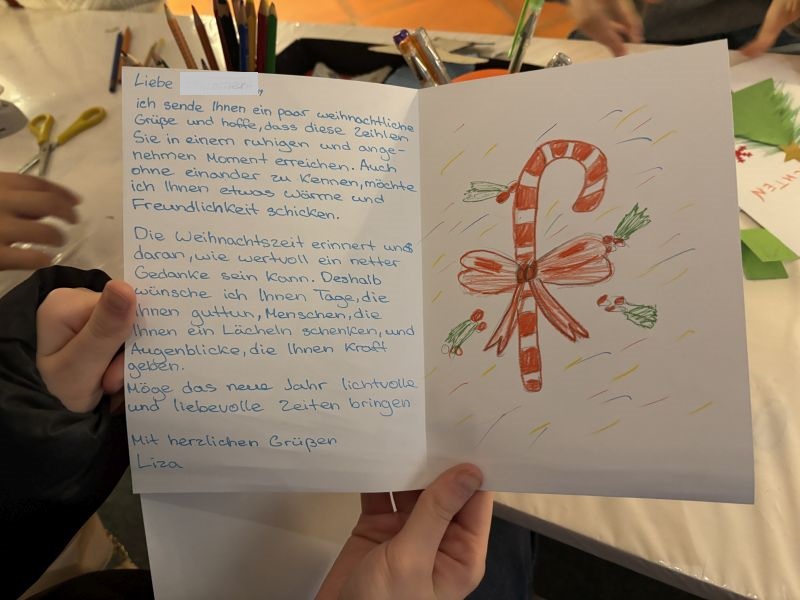 Liebe
ich sende Ihnen ein paar weihnachtliche
Grüße und hoffe, dass diese Zeihlen
Sie in einem ruhigen und ange-
nehmen Moment erreichen. Auch
ohne einander zu kennen, möchte
ich Ihnen etwas Wärme und
Freundlichkeit schicken.
Die Weihnachtszeit erinnert uns
daran, wie wertvoll ein netter
Gedanke sein kann. Deshalb
wünsche ich Ihnen Tage, die
Ihnen guttun, Menschen, die
Ihnen ein Lächeln schenken, und
Augenblicke, die Ihnen Kraft
geben.
Möge das neue Jahr lichtvolle
und liebevolle Zeiten bringen
Mit herzlichen Grüßen
Liza